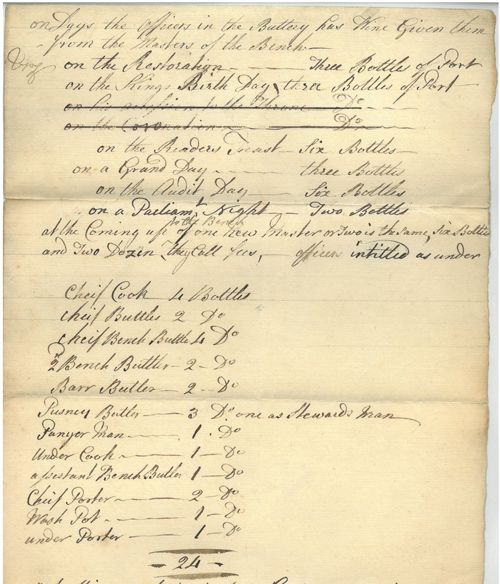 on Days the officers in the Buttery has Wine Given them
from the Masters of the Bench—
on the Restoration — Three Bottles of Port
on the Kings Birth Day, three Bottles of Port
on his accession to the Throne Do
on the Coronation — Do
on the Readers Feast — Six Bottles —
on a Grand Day — three Bottles
on the Audit Day — Six Bottles
on a Parliamt Night — Two Bottles
to the Bench
at the Coming up of one new Master or Two is the same, Six Bottles
and Two Dozen, the Call fees, — officers intitled as under
Cheif Cook 4 Bottles
Cheif Buttler 2 Do
Cheif Bench Buttler 4 Do
2d Bench Buttler — 2 — Do
Barr Butler — 2 — Do
Pusney Butler — 3 Do one as Stewards Man
Panyer Man — 1 . Do
Under Cook — 1 — Do
assestant Bench Butler 1 — Do
Cheif Porter — 2 — Do
Wash Pot — 1 — Do
under Porter — 1 — Do
— 24 —